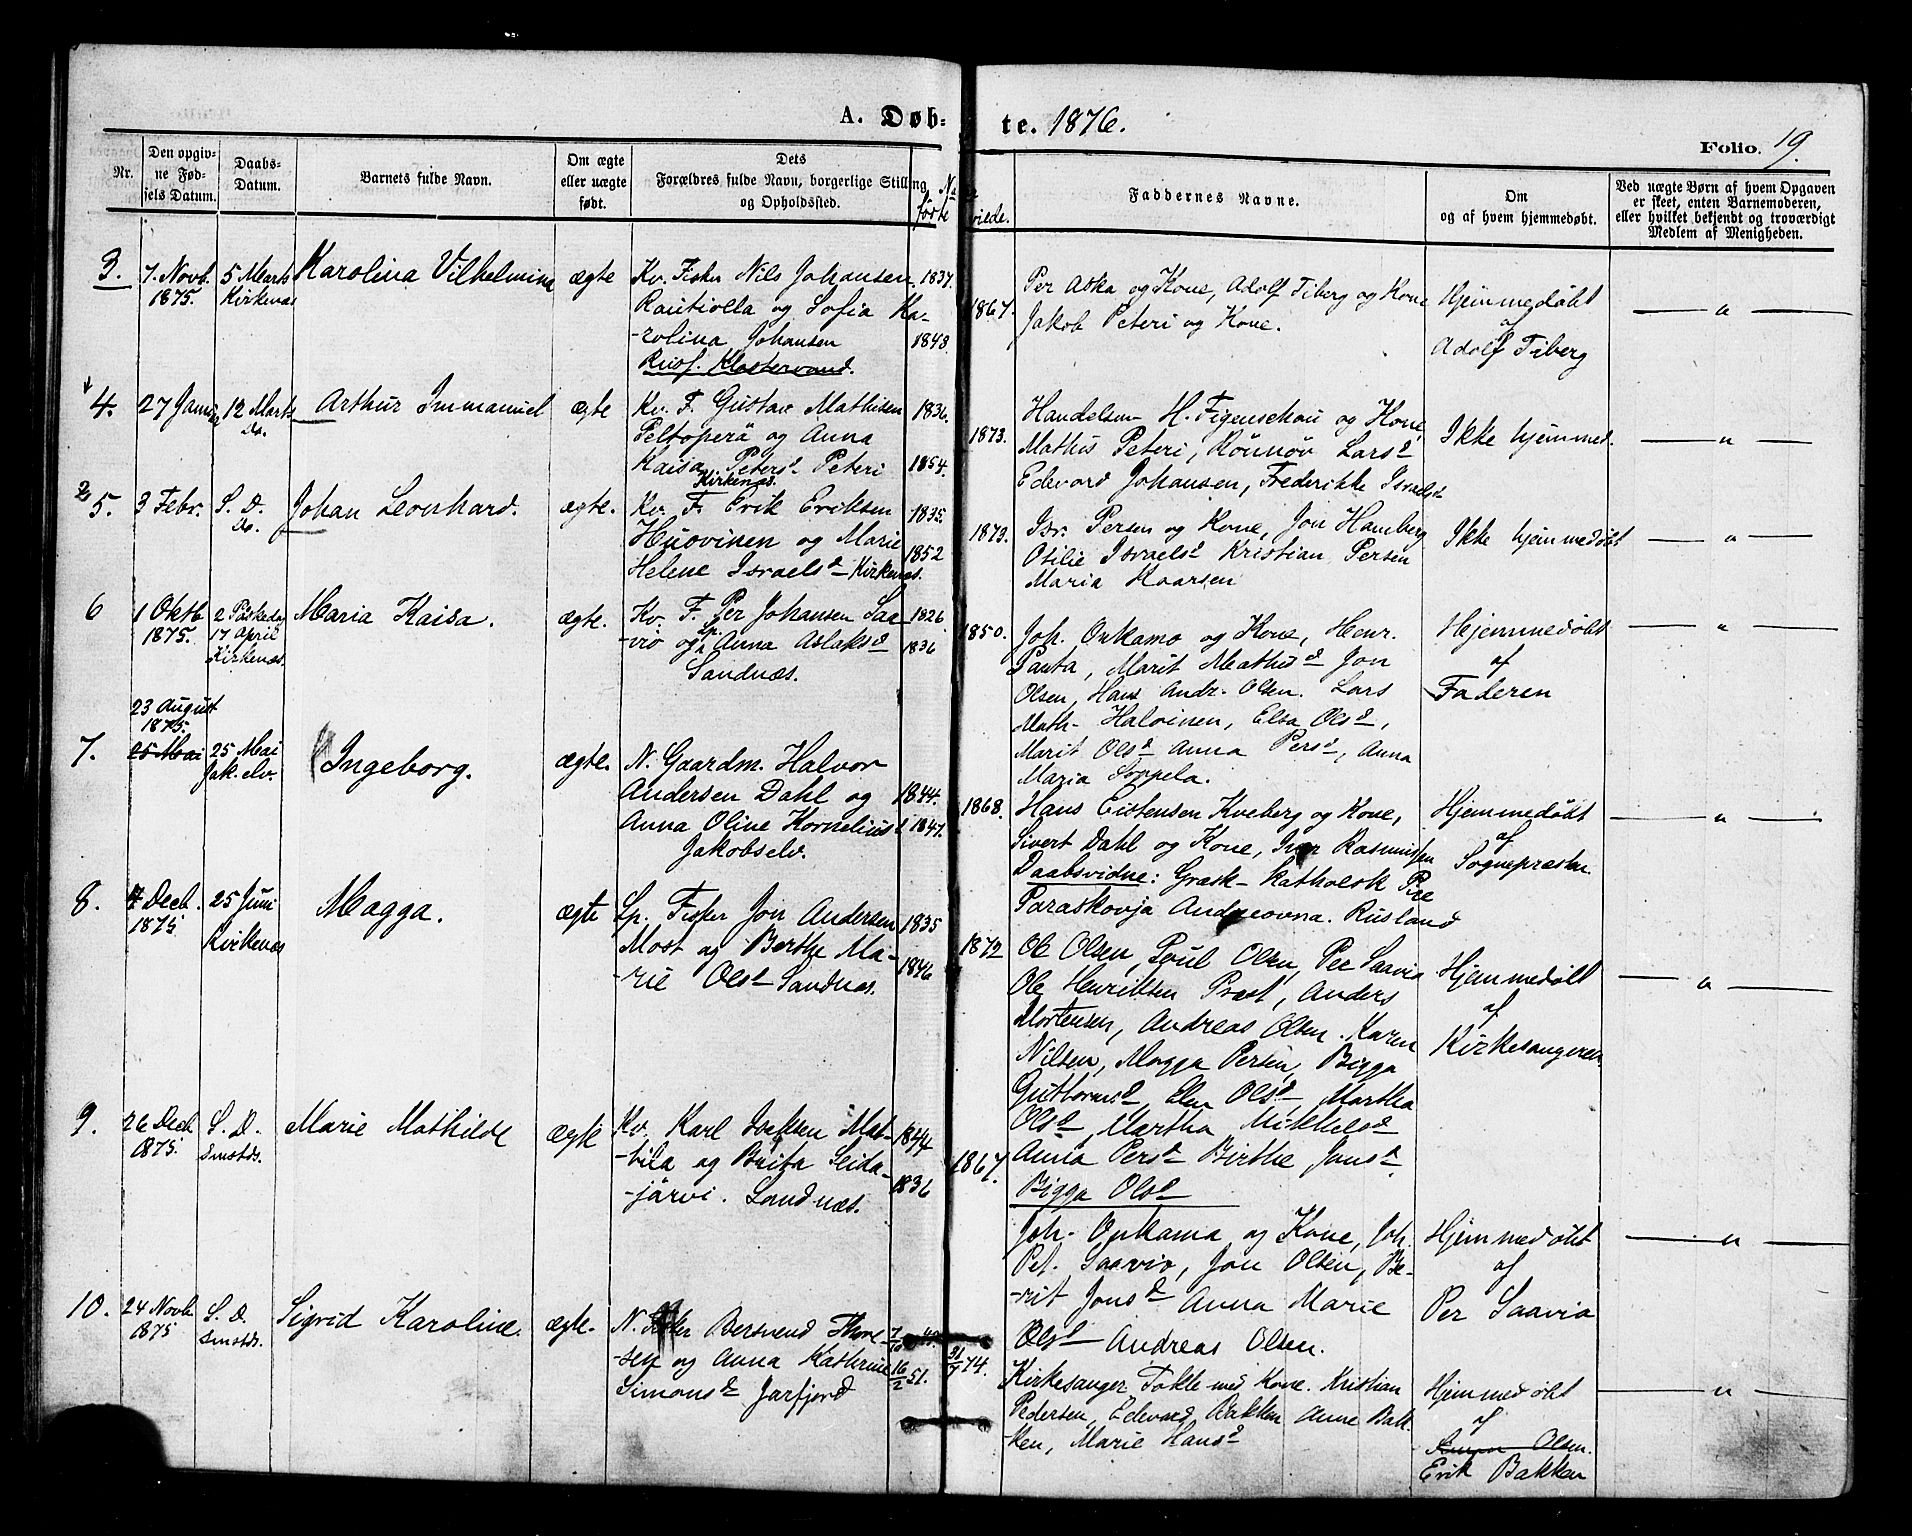 A. Døb-
te. 1876.
Folio. 19.
Nr.
Den opgiv-
ne Fød-
sels Datum.
Daabs-
Datum.
Barnets fulde Navn.
Om ægte
eller uægte
født.
Dets
Forældres fulde Navn, borgerlige Stilling
og Opholdssted.
Faddernes Navne.
Om
og af hvem hjemmedøbt.
Ved uægte Børn af hvem Opgaven
er skeet, enten Barnemoderen,
eller hvilket bekjendt og troværdigt
Medlem af Menigheden.
3.
7. Novb.
1875.
5 Marts
Kirkenæs
Karolina Vilhelmina
ægte
Kv. Fisker Nils Johansen
Rautiolla og Sofia Ka-
-rolina Johansen
Rusf. Klostervand.
1837.
1843.
1867.
Per Aska og Kone, Adolf Tiberg og Kone
Jakob Peteri og Kone.
Hjemmedøbt
af
Adolf Tiberg
4.
27 Januar
12 Marts
Ds.
Arthur Immanuel
ægte
Kv. F. Gustav Mathisen
Peltoperä og Anna
Kaisa Petersd Peteri
Kirkenæs.
1836.
1854.
1873.
Handelsm. H. Figenschou og Kone,
Mathis Peteri, Rönnöv Larsd
Edevard Johansen, Frederikke Israelsd
Ikke hjemmed.
5.
3 Febr.
S. D.
Ds.
Johan Leonhard.
ægte.
Kv. F. Erik Eriksen
Huovinen og Marie
Helene Israelsd Kirkenæs.
1835.
1852
1873.
Isr. Persen og Kone, Jon Hamberg
Otilie Israelsd Kristian Persen
Maria Kaarsen
Ikke hjemmedøbt
6
1 Oktb
1875.
2 Paaskedag
17 April
Kirkenæs.
Maria Kaisa.
ægte.
Kv. F. Per Johansen Saa-
-vio og Lp. Anna Aslaksd
Sandnæs.
1826.
1836
1850.
Joh. Onkamo og Kone, Henr.
Panta, Marit Mathisd Jon
Olsen, Hans Andr. Olsen. Lars
Math- Halvinen, Elsa Olsd,
Marit Olsd Anna Persd, Anna
Maria Soppela.
Hjemmedøbt
af
Faderen
7.
23 August
1875.
25 Mai
25 Mai
Jak.elv.
Ingeborg.
ægte.
N. Gaardm. Halvor
Andersen Dahl og
Anna Oline Kornelius d
Jakobselv.
1844.
1847.
1868.
Hans Eistensen Kveberg og Kone,
Sivert Dahl og Kone, Iver Rasmussen
Daabsvidne: Græsk-katholsk Pige
Paraskovja Andreovna. Rusland
Hjemmedøbt
af
Sognepræsten.
8.
4 Decb.
1875
25 Juni
Kirkenæs
Magga.
ægte
Lp. Fisker Jon Andersen
Most og Berthe Ma-
-rie Olsd Sandnæs.
1835
1846
1872
Ole Olsen, Poul Olsen, Per Saavio
Ole Henriksen Præst, Anders
Mortensen, Andreas Olsen. Karen
Nilsen, Magga Persen, Bigga
Guttormsd, Elen Olsd, Martha
Olsd Martha Mikkelsd
Anna Persd Birthe Jonsd.
Bigga Olsd
Hjemmedøbt
af
Kirkesangeren
9.
26 Decb
1875.
S. D.
Marie Mathilde
ægte
Kv. Karl Mat-
-tila og Brita Seida-
-järvi. Sandnæs.
1844
1836
1867.
Joh. Onkama og Kone, Joh.
Pet. Saavio, Jon Olsen, Be-
-rit Jonsd Anna Marie
Olsd Andreas Olsen.
Hjemmedøbt
af
Per Saavio
10.
24 Novb
1875
S. D.
Sigrid Karoline.
ægte.
N. Bersvend Thore-
-sen og Anna Kathrine
Simonsd Jarfjord
16/2 51.
31/7 74.
Kirkesanger Tokle med Kone. Kristian
Pedersen, Edevard Bakken Anne Bak-
-ken, Marie Hansd
Hjemmedøbt
af
Olsen.
Erik Bakken